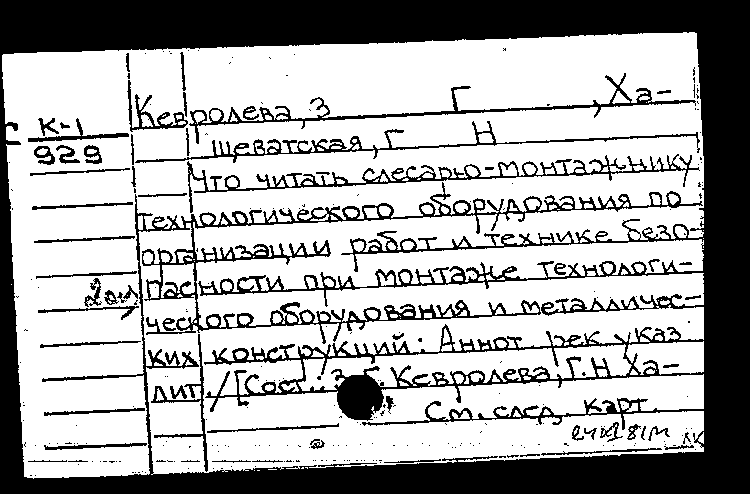 Кевролева, З Г , Ха-
К-1
929
щеватская, Г Н
Что читать слесарю-монтажнику
технологического оборудования по
организации работ и технике безо-
пасности при монтаже технологи-
ческого оборудования и металличес-
ких конструкций: Аннот рек указ
лит. / [Сост.: З. Г. Кевролева, Г. Н. Ха-
См. след. карт.